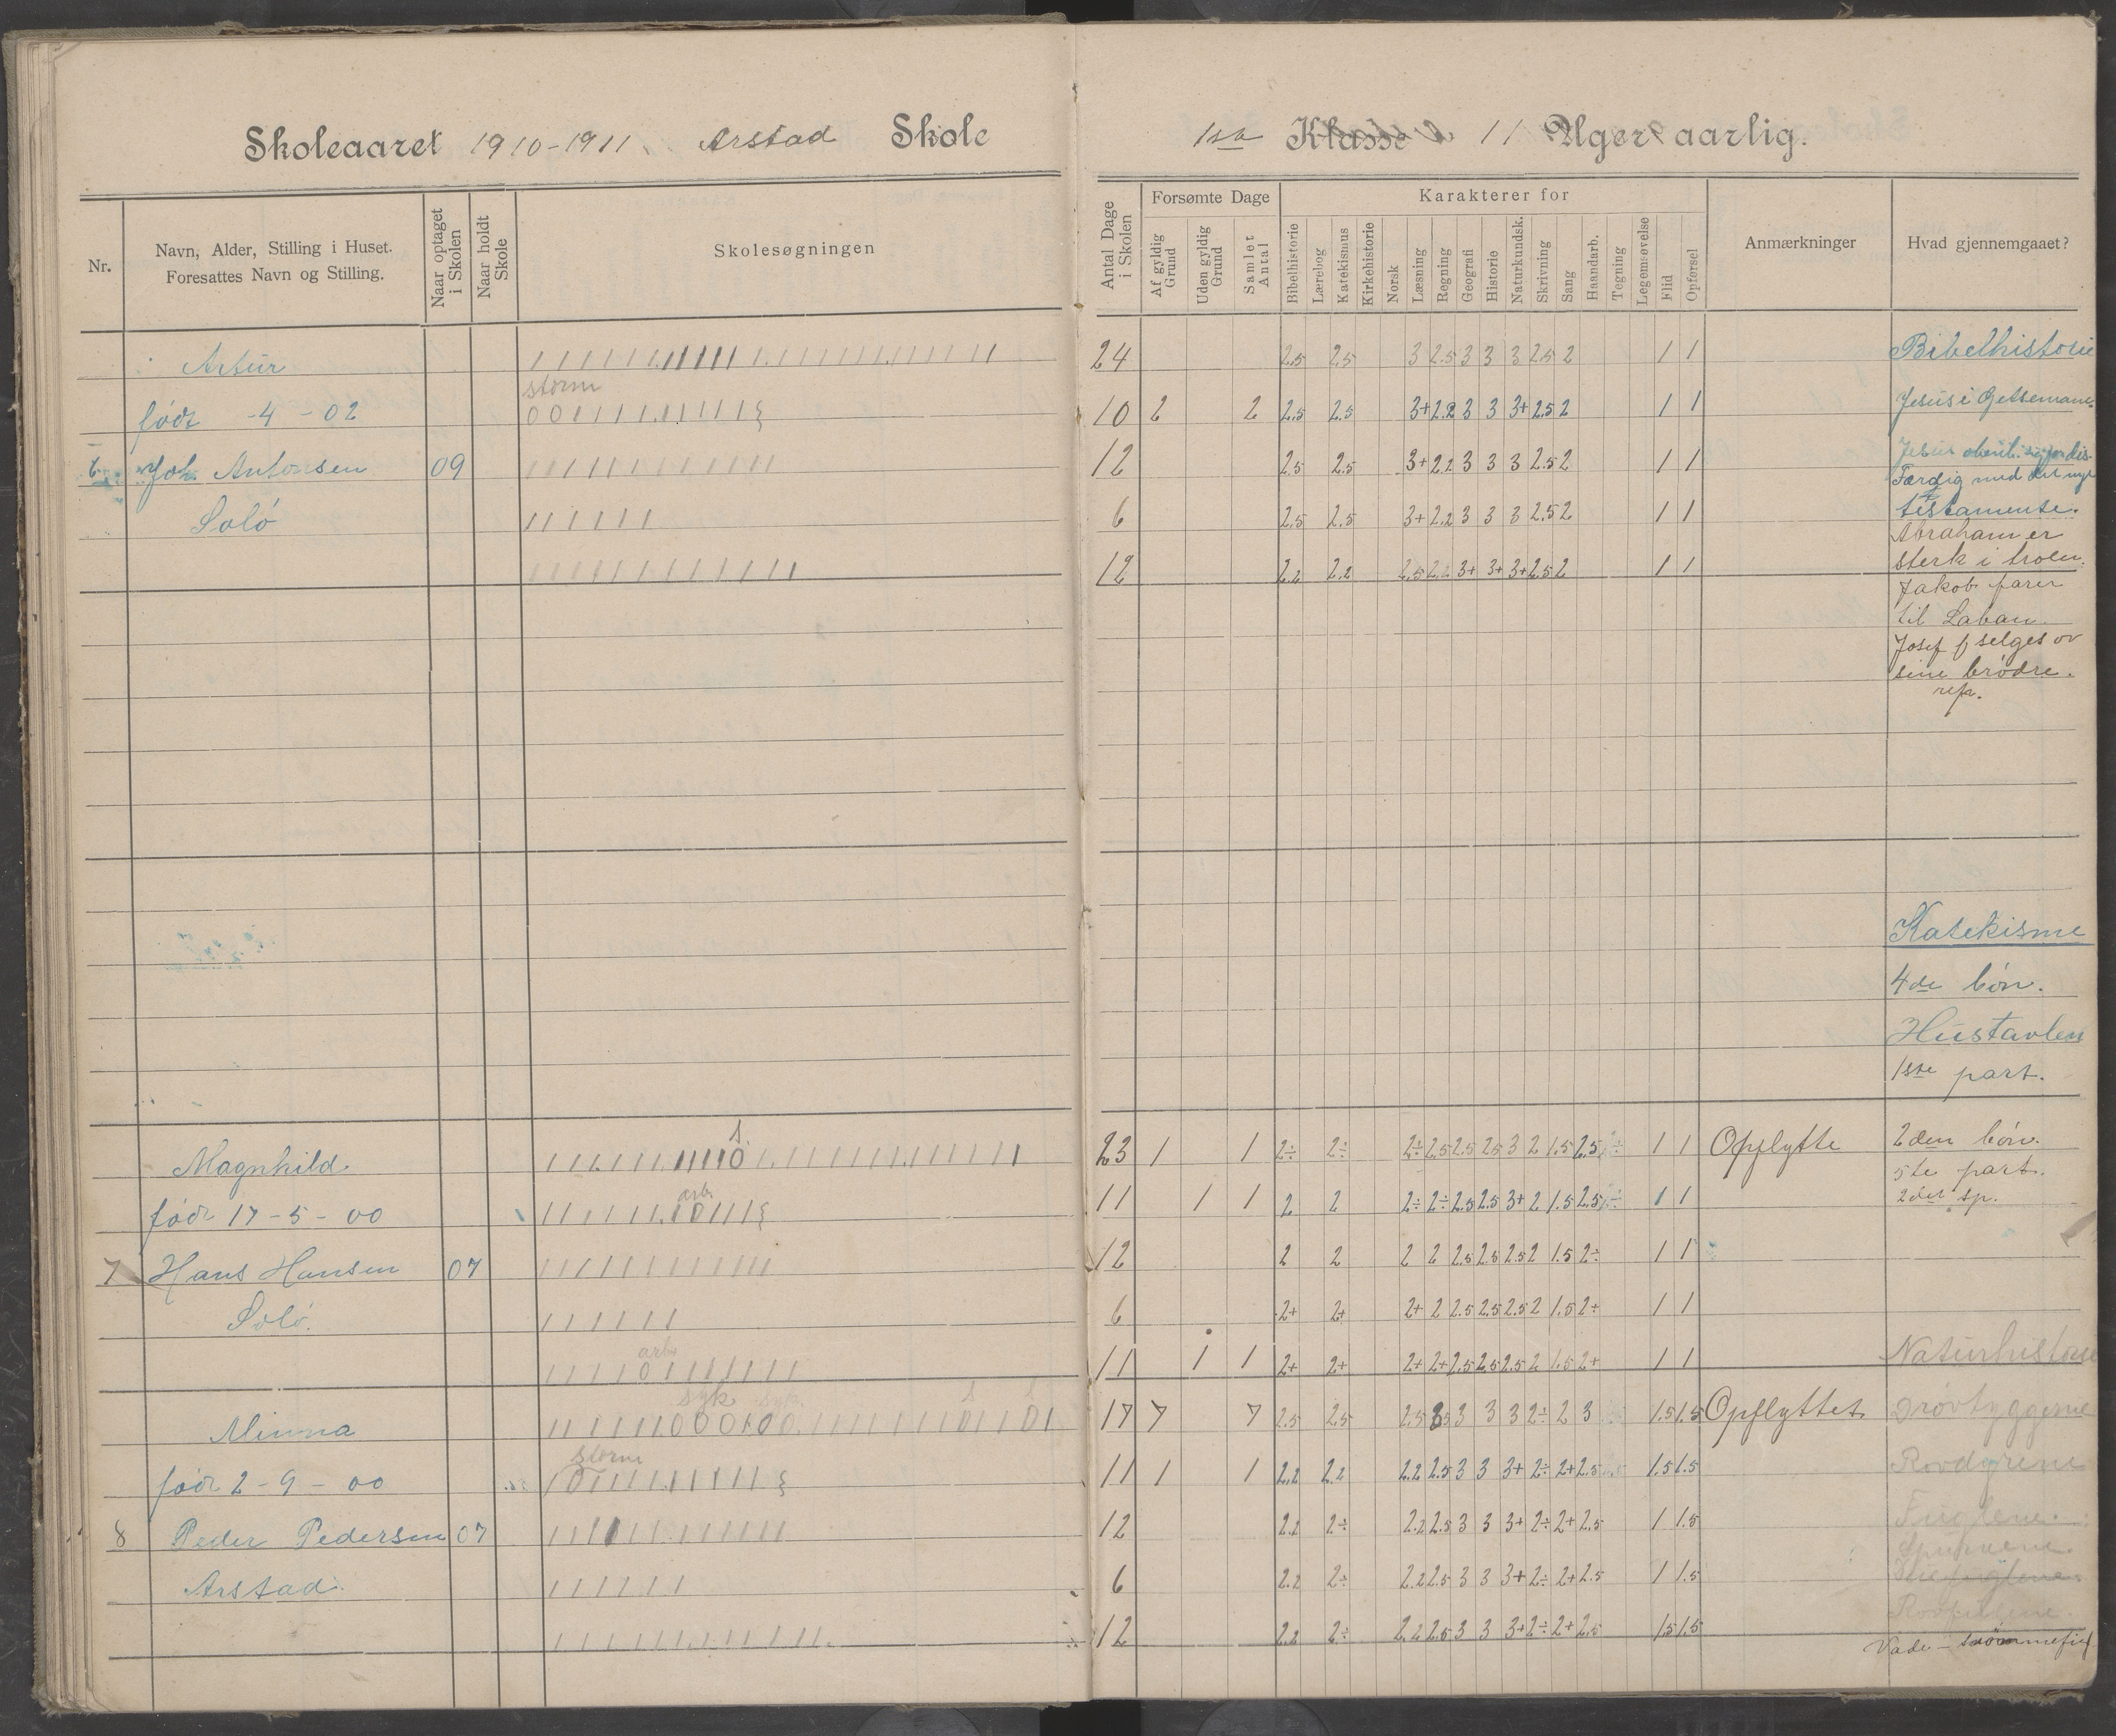 Skoleaaret 1910-1911. Arstad Skole
1ste Klasse 11 Uger aarlig.
Nr.
Navn, Alder, Stilling i Huset.
Foresattes Navn og Stilling.
Naar optaget i Skolen
Naar holdt Skole
Skolesøgningen
Antal Dage i Skolen
Forsømte Dage
Af gyldig Grund
Uden gyldig Grund
Samlet Antal
Karakterer for
Bibelhistorie
Lærebog
Katekismus
Kirkehistorie
Norsk
Læsning
Regning
Geografi
Historie
Naturkundsk.
Skrivning
Sang
Haandarb.
Tegning
Legemsøvelse
Flid
Opførsel
Anmærkninger
Hvad gjennemgaaet?
Artur 24 2.5 2.5 3 2.5 3 3 3 2.5 2 1 1 Bibelhistorie
storm
født -4-02 10 2 2 2.5 2.5 3+ 2.2 3 3 3+ 2.5 2 1 1 Jesus i Getsemane.
6 Joh. Antonsen 09 12 2.5 2.5 3+ 2.2 3 3 3 2.5 2 1 1 Jesus
Færdig med det nye
Solø 6 2.5 2.5 3+ 2.2 3 3 3 2.5 2 1 1 testamente.
Abraham er
12 2.2 2.2 2.5 2.2 3+ 3+ 3+ 2.5 2 1 1 sterk i troen.
Jakob farer
til Laban
Josef selges ov
sine brødre.
rep.
Katekisme
4de bön.
Hustavlen
1ste part.
s.
Magnhild. 23 1 1 2÷ 2÷ 2÷ 2.5 2.5 2.5 3 2 1.5 2.5 1 1 Opflytte 2den bön.
5te part.
arb.
født 17-5-00 11 1 1 2 2 2÷ 2÷ 2.5 2.5 3+ 2 1.5 2.5 1 1 2det sp.
7 Hans Hansen 07 12 2 2 2 2 2.5 2.5 2.5 2 1.5 2÷ 1 1
Solø. 6 2+ 2+ 2+ 2 2.5 2.5 2.5 2 1.5 2÷ 1 1
arb.
11 1 1 2+ 2+ 2+ 2+ 2.5 2.5 2.5 2 1.5 2+ 1 1 Naturhistorie
syk syk. s s
Minna 17 7 7 2.5 2.5 2.5 3 3 3 2÷ 2 3 1.5 1.5 Opflyttet drövtyggerne
storm
født 2-9-00 11 1 1 2.2 2.2 2.2 2.5 3 3 3+ 2÷ 2+ 2.5 1.5 1.5 Rovdyrene
8 Peder Pedersen 07 12 2.2 2÷ 2.2 2.5 3 3 3+ 2÷ 2+ 2.5 1 1.5 Fuglene.
Arstad. 6 2.2 2÷ 2.2 2.5 3 3 3+ 2÷ 2+ 2.5 1 1.5
Rovfuglene.
12 2.2 2÷ 2.2 2.5 3 3 3+ 2÷ 2+ 2.5 1.5 1.5
Vade- svömmefugl